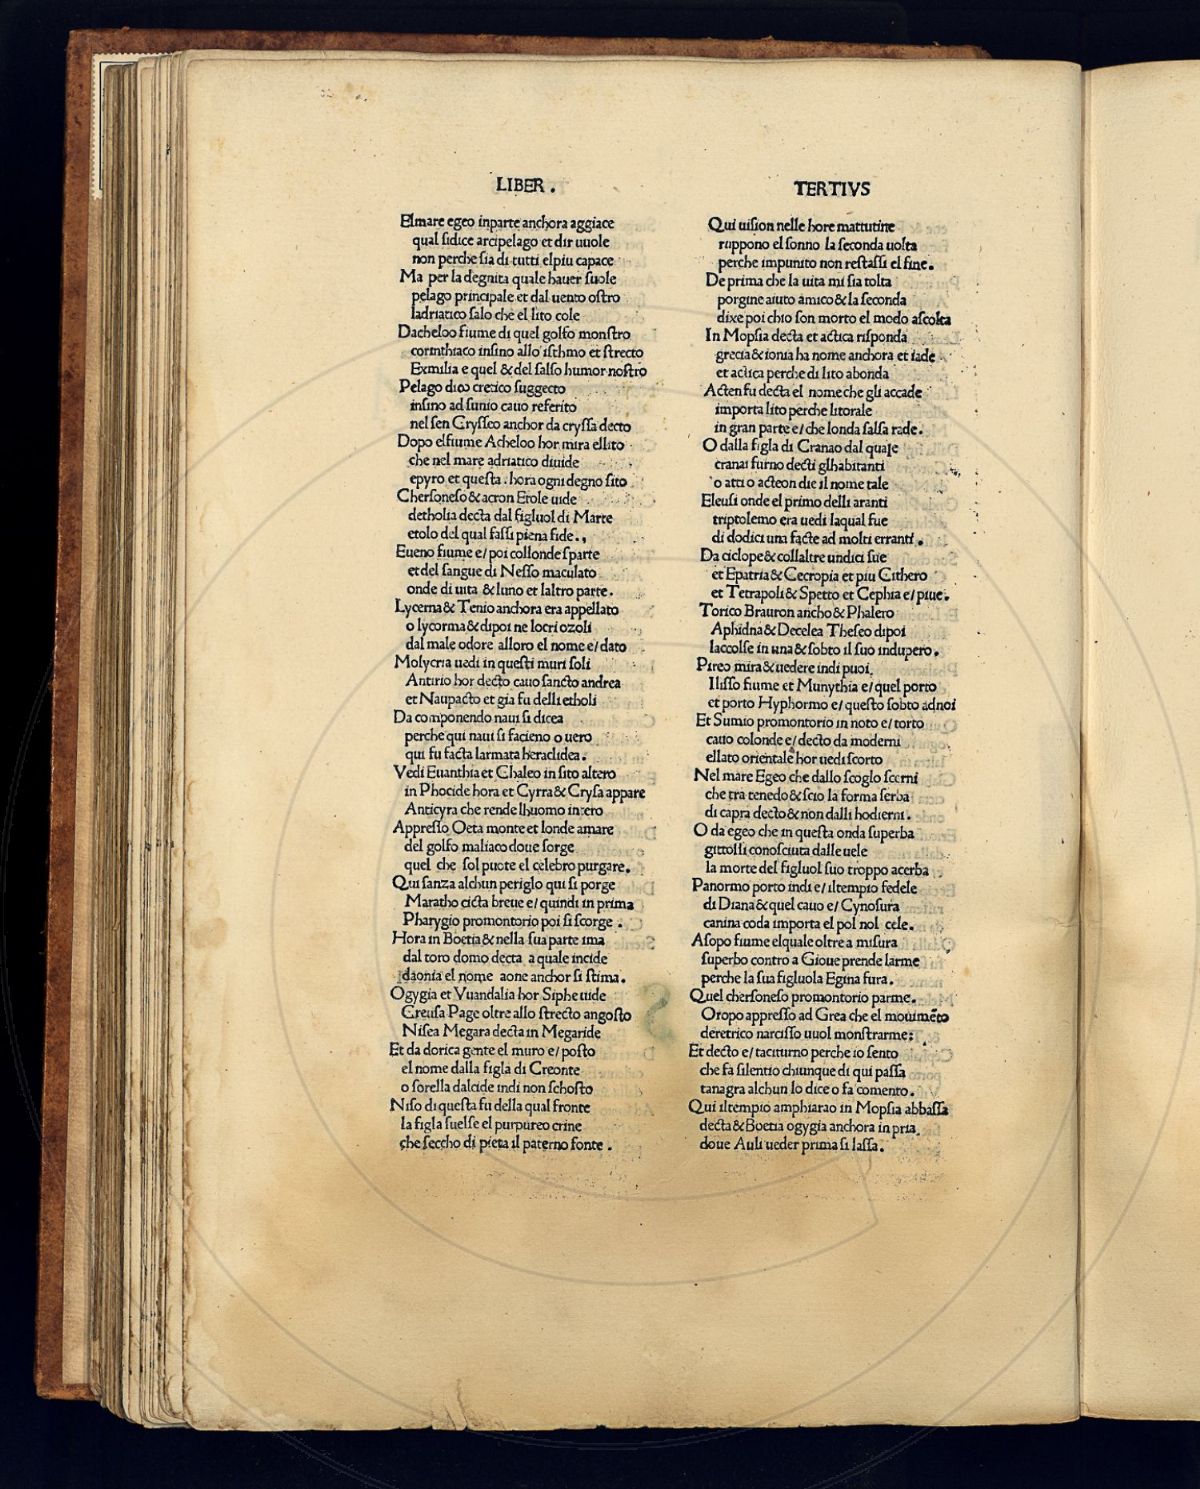 LIBER .
Elmare egeo inparte anchora aggiace
qual sidice arcipelago et dir uuole
non perche sia di tutti elpiu capace
Ma per la degnita quale hauer suole
pelago principale et dal uento ostro
ladriatico salo che el lito cole
Dacheloo fiume di quel golfo monstro
corinthiaco insino allo isthmo et strecto
Exmilia e quel & del salso humor nostro
Pelago dico cretico suggecto
insino ad sunio cauo referito
nel sen Crysseo anchor da cryssa decto
Dopo elfiume Acheloo hor mira ellito
che nel mare adriatico diuide
epyro et questa . hora ogni degno sito
Chersoneso & acron Etole uide
detholia decta dal figluol di Marte
etolo del qual fassi piena fide . ,
Eueno fiume e/ poi collonde sparte
et del sangue di Nesso maculato
onde di uita & luno et laltro parte .
Lycerna & Tenio anchora era appellato
o lycorma & dipoi ne locri ozoli
dal male odore alloro el nome e/ dato
Molycria uedi in questi muri soli
Antirio hor decto cauo sancto andrea
et Naupacto et gia fu delli etholi
Da componendo naui si dicea
perche qui naui si facieno o uero
qui fu facta larmata heraclidea .
Vedi Euanthia et Chaleo in sito altero
in Phocide hora et Cyrra & Crysa appare
Anticyra che rende lhuomo intero
Appresso Oeta monte et londe amare
del golfo maliaco doue sorge
quel che sol puote el celebro purgare .
Qui sanza alchun periglo qui si porge
Maratho cicta breue e/ quindi in prima
Pharygio promontorio poi si scorge .
Hora in Boetia & nella sua parte ima
dal toro domo decta a quale incide
daonia el nome aone anchor si stima .
Ogygia et Vuandalia hor Siphe uide
Creusa Page oltre allo strecto angosto
Nisea Megara decta in Megaride
Et da dorica gente el muro e/ posto
el nome dalla figla di Creonte
o sorella dalcide indi non schosto
Niso di questa fu della qual fronte
la figla suelse el purpureo crine
che seccho di pieta il paterno fonte .
TERTIVS
Qui uision nelle hore mattutine
ruppono el sonno la seconda uolta
perche impunito non restassi el fine .
De prima che la uita mi sia tolta
porgine aiuto amico & la seconda
dixe poi chio son morto el modo ascolta
In Mopsia decta et actica risponda
grecia & ionia ha nome anchora et iade
et actica perche di lito abonda
Acten fu decta el nome che gli accade
importa lito perche litorale
in gran parte e/ che londa salsa rade .
O dalla figla di Cranao dal quale
cranai furno decti glhabitanti
o atti o acteon die il nome tale
Eleusi onde el primo delli aranti
triptolemo era uedi laqual fue
di dodici una facte ad molti erranti .
Da ciclope & collaltre undici sue
et Epatria & Cecropia et piu Cithero
et Tetrapoli & Spetto et Cephia e/ piue .
Torico Brauron ancho & Phalero
Aphidna & Decelea Theseo dipoi
laccolse in una & sobto il suo indupero .
Pireo mira & uedere indi puoi
Ilisso fiume et Munythia e/ quel porto
et porto Hyphormo e/ questo sobto ad noi
Et Sumio promontorio in noto e/ torto
cauo colonde e/ decto da moderni
ellato orientale hor uedi scorto
Nel mare Egeo che dallo scoglo scerni
che tra tenedo & scio la forma serba
di capra decto & non dalli hodierni .
O da egeo che in questa onda superba
gittossi conosciuta dalle uele
la morte del figluol suo troppo acerba
Panormo porto indi e/ iltempio fedele
di Diana & quel cauo e/ Cynosura
canina coda importa el pol nol cele .
Asopo fiume elquale oltre a misura
superbo contro a Gioue prende larme
perche la sua figluola Egina fura .
Quel chersoneso promontorio parme .
Oropo appresso ad Grea che el mouimẽto
deretrico narcisso uuol monstrarme :
Et decto e/ taciturno perche io sento
che fa silentio chiunque di qui passa
tanagra alchun lo dice o fa comento .
Qui iltempio amphiarao in Mopsia abbassa
decta & Boetia ogygia anchora in pria
doue Auli ueder prima si lassa .